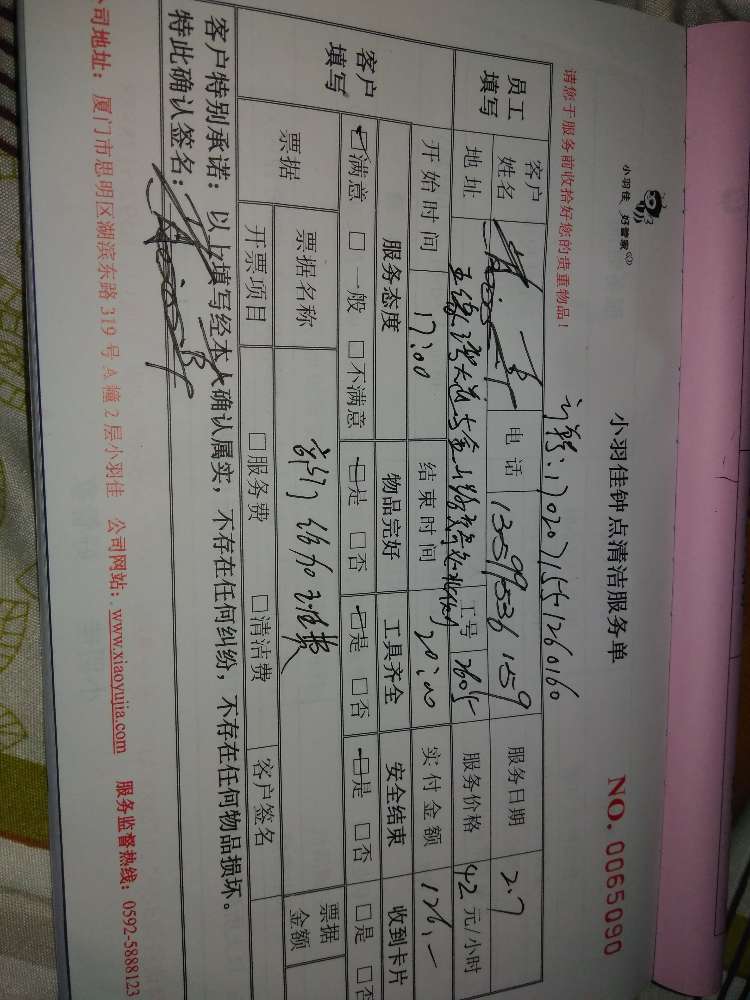 小羽佳 好管家
小羽佳钟点清洁服务单
NO. 0065090
请您于服务前收拾好您的贵重物品！
1702071551260160
员工填写 客户姓名 电话 13599536159 服务日期 2.7
地址 工号 2605 服务价格 42 元/小时
开始时间 17:00 结束时间 20:00 实付金额 126.-
客户填写 服务态度 物品完好 工具齐全 安全结束 收到卡片
☑满意 □一般 □不满意 ☑是 □否 ☑是 □否 ☑是 □否 □是 □否
票据 票据名称 票据金额
开票项目 □服务费 □清洁费 客户签名
客户特别承诺：以上填写经本人确认属实，不存在任何纠纷，不存在任何物品损坏。
特此确认签名：
公司地址：厦门市思明区湖滨东路 319 号 A 幢 2 层小羽佳 公司网站：www.xiaoyujia.com 服务监督热线：0592-5888123